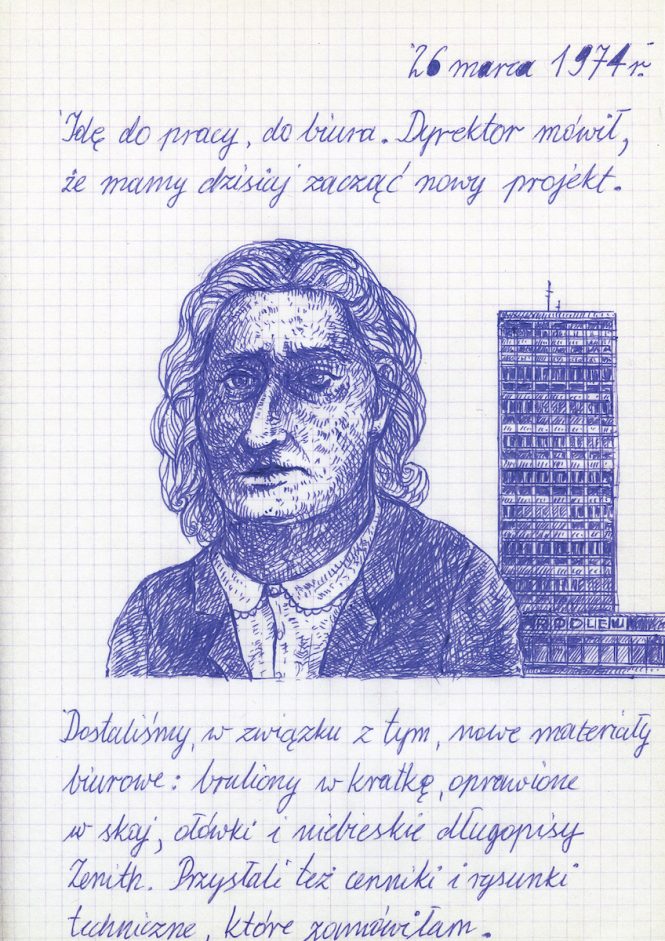 26 marca 1974 r.
Idę do pracy, do biura. Dyrektor mówił,
że mamy dzisiaj zacząć nowy projekt.
RODLEW
Dostaliśmy, w związku z tym, nowe materiały
biurowe: bruliony w kratkę, oprawione
w skaj, ołówki i niebieskie długopisy
Zenith. Przysłali też cenniki i rysunki
techniczne, które zamówiłam.